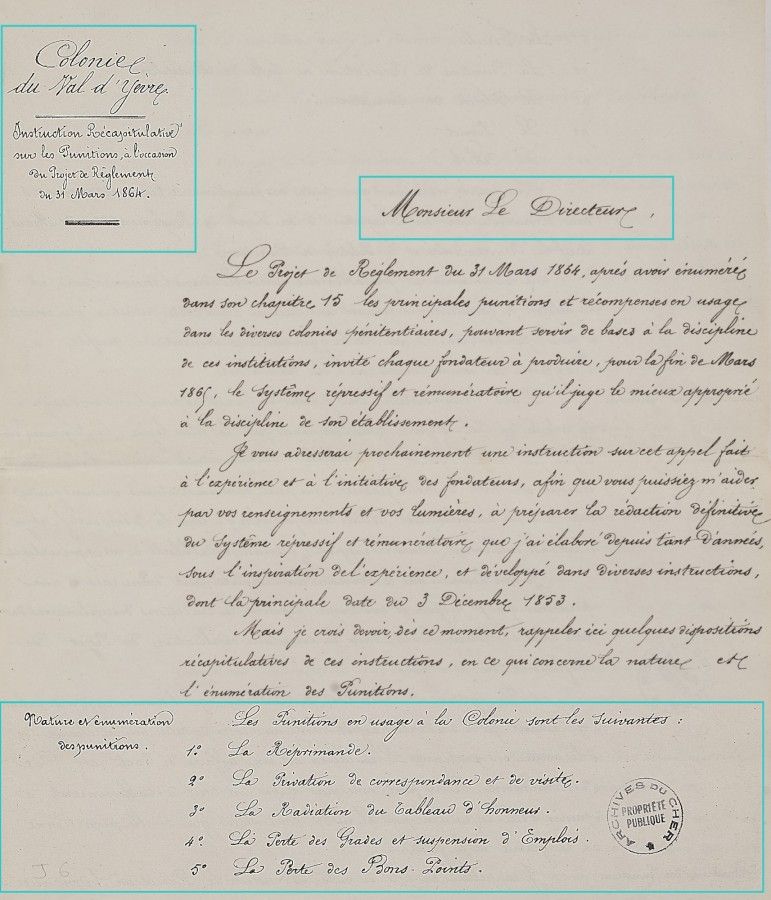 Colonie
du Val d'Yèvre.
Instruction Récapitulative
sur les Punitions, à l'occasion
du Projet de Règlement
du 31 Mars 1864.
Monsieur Le Directeur,
Le Projet de Règlement du 31 Mars 1864, après avoir énuméré
dans son chapitre 15 les principales punitions et récompenses en usage
dans les diverses colonies pénitentiaires, pouvant servir de bases à la discipline
de ces institutions, invite chaque fondateur à produire, pour la fin de Mars
1865, le Système répressif et rémunératoire qu'il juge le mieux approprié
à la discipline de son établissement.
Je vous adresserai prochainement une instruction sur cet appel fait
à l'expérience et à l'initiative des fondateurs, afin que vous puissiez m'aider
par vos renseignements et vos lumières, à préparer la rédaction définitive
du Système répressif et rémunératoire que j'ai élaboré depuis tant d'années,
sous l'inspiration de l'expérience, et développé dans diverses instructions,
dont la principale date du 3 Décembre 1853.
Mais je crois devoir, dès ce moment, rappeler ici quelques dispositions
récapitulatives de ces instructions, en ce qui concerne la nature et
l'énumération des Punitions.
Nature et énumération
des punitions.
Les Punitions en usage à la Colonie sont les Suivantes :
1º La Réprimande.
2º La Privation de correspondance et de visite.
3º La Radiation du Tableau d'honneur.
4º La Perte des Grades et suspension d'Emplois.
5º La Perte des Bons-Points.
ARCHIVES DU CHER
PROPRIÉTÉ
PUBLIQUE
J 6